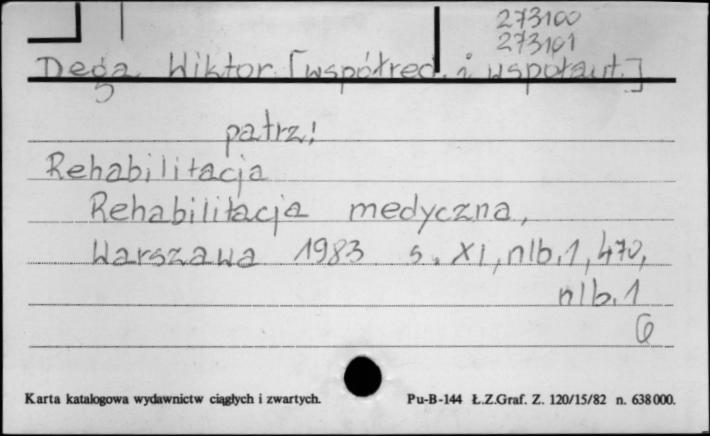 273100
273101
Dega Wiktor [współred. i współaut.]
patrz:
Rehabilitacja
Rehabilitacja medyczna,
Warszawa 1983 s. XI, nlb. 1, 470,
nlb. 1
Karta katalogowa wydawnictw ciągłych i zwartych. Pu-B-144 Ł.Z.Graf. Z. 120/15/82 n. 638000.